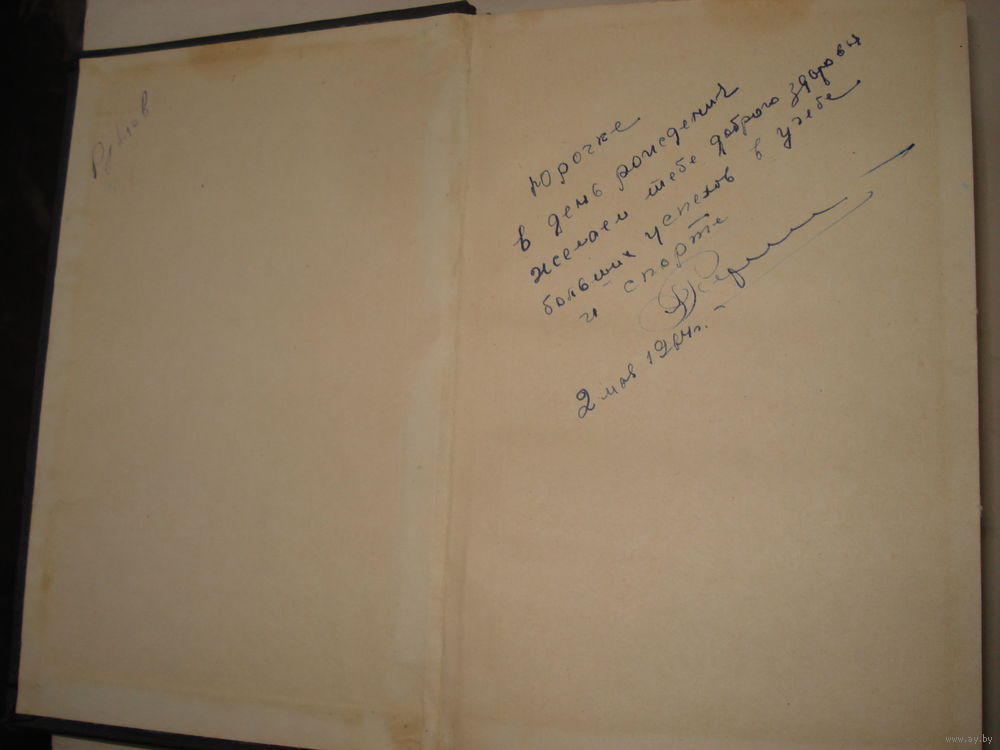 Юрочке
в день рождения
желаем тебе доброго здоровья
больших успехов в учебе
и спорте
2 мая 1964г.
www.ay.by